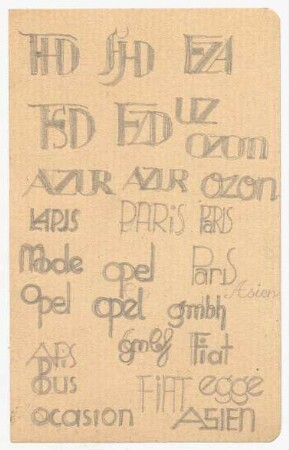 HD HD EZA
FSD EZD UZ
OZON
AZUR AZUR OZON
PARIS PARIS
Mode opel Paris
Asien
Opel opel gmbh
gmbh Fiat
Bus FIAT egge
ocasion ASIEN